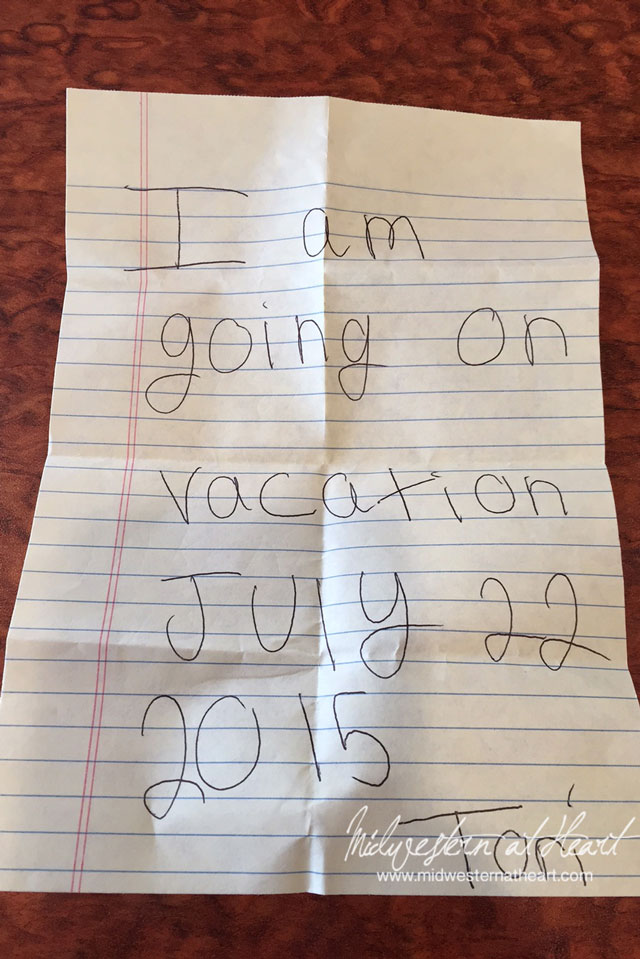 I am
going on
vacation
July 22
2015
Tori
Midwestern at Heart
www.midwesternatheart.com